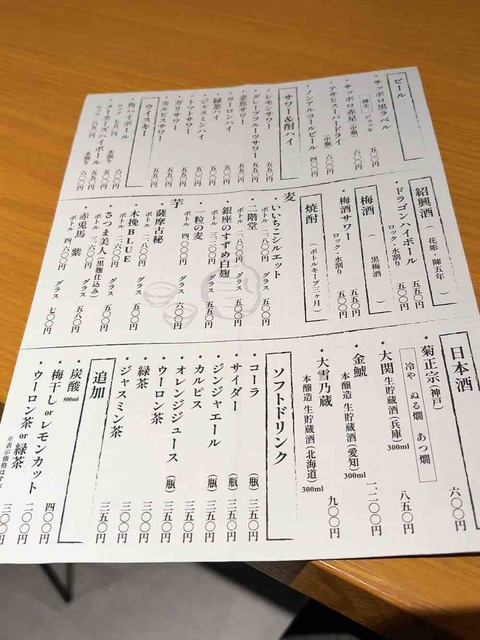 ビール
・サッポロ黒ラベル
樽生・ジョッキ 五五〇円
・サッポロ赤星(中瓶) 六〇〇円
・アサヒスーパードライ(中瓶) 六〇〇円
・ノンアルコールビール 四〇〇円
サワー&酎ハイ
・レモンサワー 五五〇円
・グレープフルーツサワー 五五〇円
・金魚サワー 五五〇円
・ウーロンハイ 五五〇円
・緑茶ハイ 五五〇円
・ジャスミンハイ 五五〇円
・トマトサワー 五五〇円
・ガリサワー 五五〇円
・カルピスサワー 五五〇円
ウイスキー
・角ハイボール 五五〇円
ロック 水割り
・メーカーズハイボール
ロック 水割り
紹興酒(花彫 陳五年)
・ドラゴンハイボール 五五〇円
ロック・水割り 五〇〇円
梅酒(黒梅酒)
・梅酒サワー 五五〇円
ロック・水割り 五五〇円
焼酎(ボトルキープ三ヶ月)
麦
・いいちこシルエット
ボトル 二八〇〇円 グラス 五〇〇円
・二階堂
ボトル 二八〇〇円 グラス 五〇〇円
・銀座のすずめ白麹
ボトル 三二〇〇円 グラス 五五〇円
・一粒の麦
芋
薩摩古秘
ボトル グラス 六〇〇円
・木挽BLUE
ボトル グラス 五〇〇円
・さつま美人(黒麹仕込み)
ボトル グラス 五五〇円
・赤兎馬 紫
ボトル グラス 七〇〇円
日本酒
・菊正宗(神戸) 六〇〇円
冷や ぬる燗 あつ燗
・大関 八五〇円
生貯蔵酒(兵庫)300ml
・金鯱 一、二〇〇円
本醸造 生貯蔵酒(愛知)300ml
・大雪乃蔵 九〇〇円
本醸造 生貯蔵酒(北海道)300ml
ソフトドリンク
・コーラ(瓶) 三五〇円
・サイダー(瓶) 三五〇円
・ジンジャエール(瓶) 三五〇円
・カルピス 三五〇円
・オレンジジュース(瓶) 三五〇円
・ウーロン茶 三〇〇円
・緑茶 三〇〇円
・ジャスミン茶 三五〇円
追加
・炭酸 500ml 四〇〇円
・梅干し or レモンカット 二〇〇円
・ウーロン茶 or 緑茶 三〇〇円
※表示価格はす